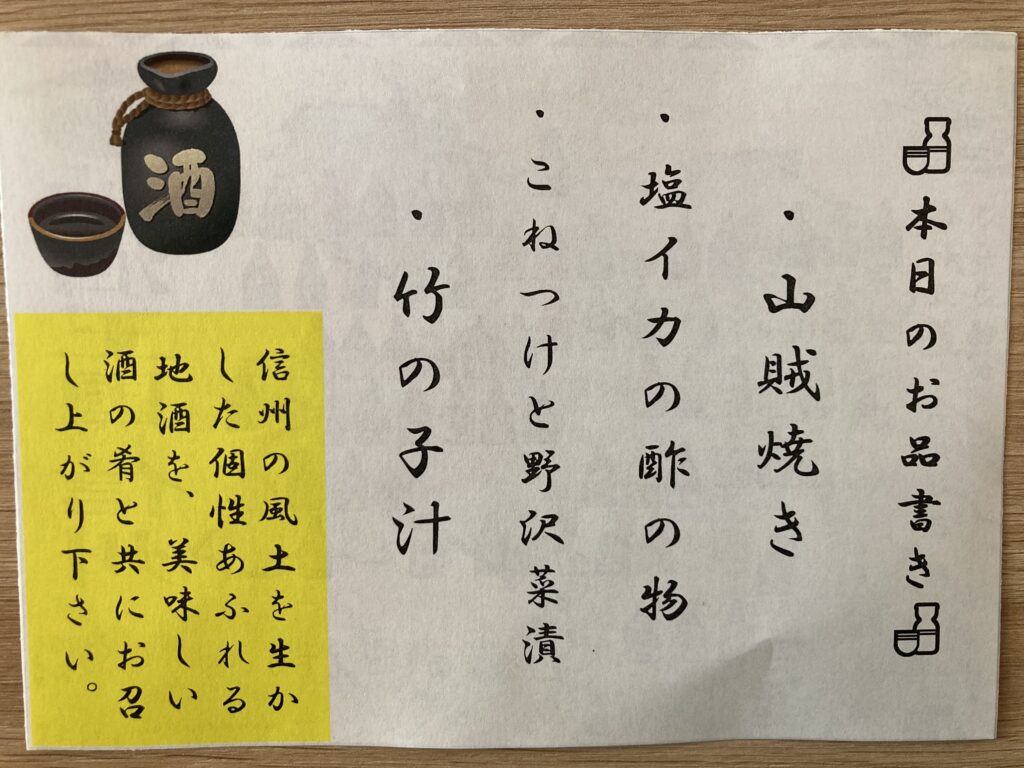 🍶本日のお品書き🍶
・山賊焼き
・塩イカの酢の物
・こねつけと野沢菜漬
・竹の子汁
酒
信州の風土を生か
した個性あふれる
地酒を、美味しい
酒の肴と共にお召
し上がり下さい。